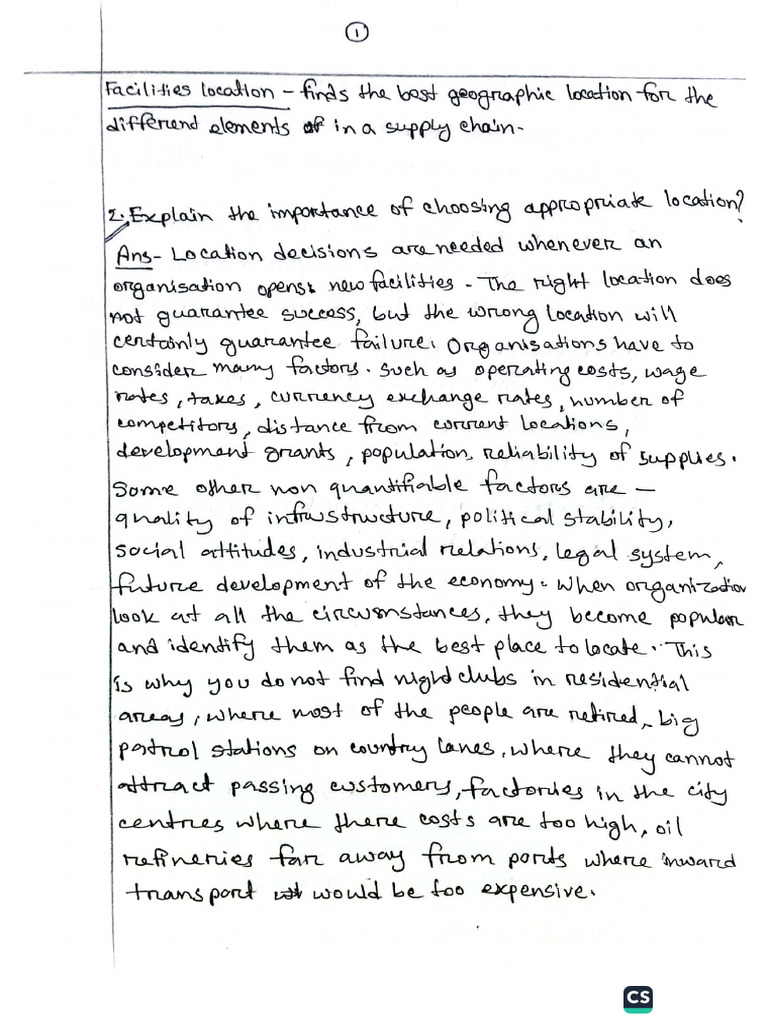 1
Facilities location - finds the best geographic location for the
different elements of in a supply chain.
2. Explain the importance of choosing appropriate location?
Ans - Location decisions are needed whenever an
organisation opens new facilities. The right location does
not guarantee success, but the wrong location will
certainly guarantee failure. Organisations have to
consider many factors. Such as operating costs, wage
rates, taxes, currency exchange rates, number of
competitors, distance from current locations,
development grants, population, reliability of supplies.
Some other non quantifiable factors are -
quality of infrustructure, political stability,
social attitudes, industrial relations, legal system,
future development of the economy. When organization
look at all the circumstances, they become popular
and identify them as the best place to locate. This
is why you do not find night clubs in residential
areas, where most of the people are retired, big
patrol stations on country lanes, where they cannot
attract passing customers, factories in the city
centres where there costs are too high, oil
refineries far away from ports where inward
transport would be too expensive.
CS